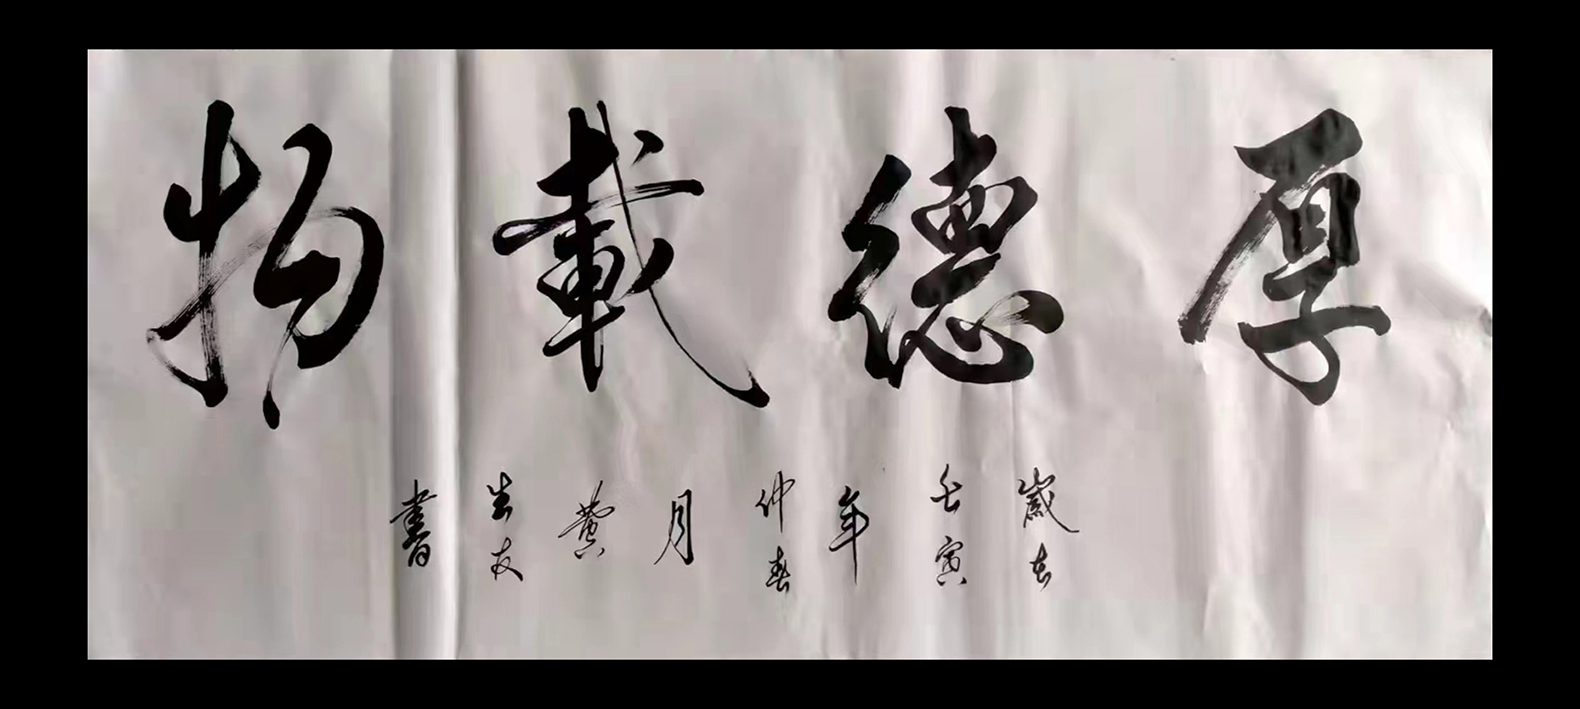 厚德載物
歲在壬寅年仲春月黄生友書